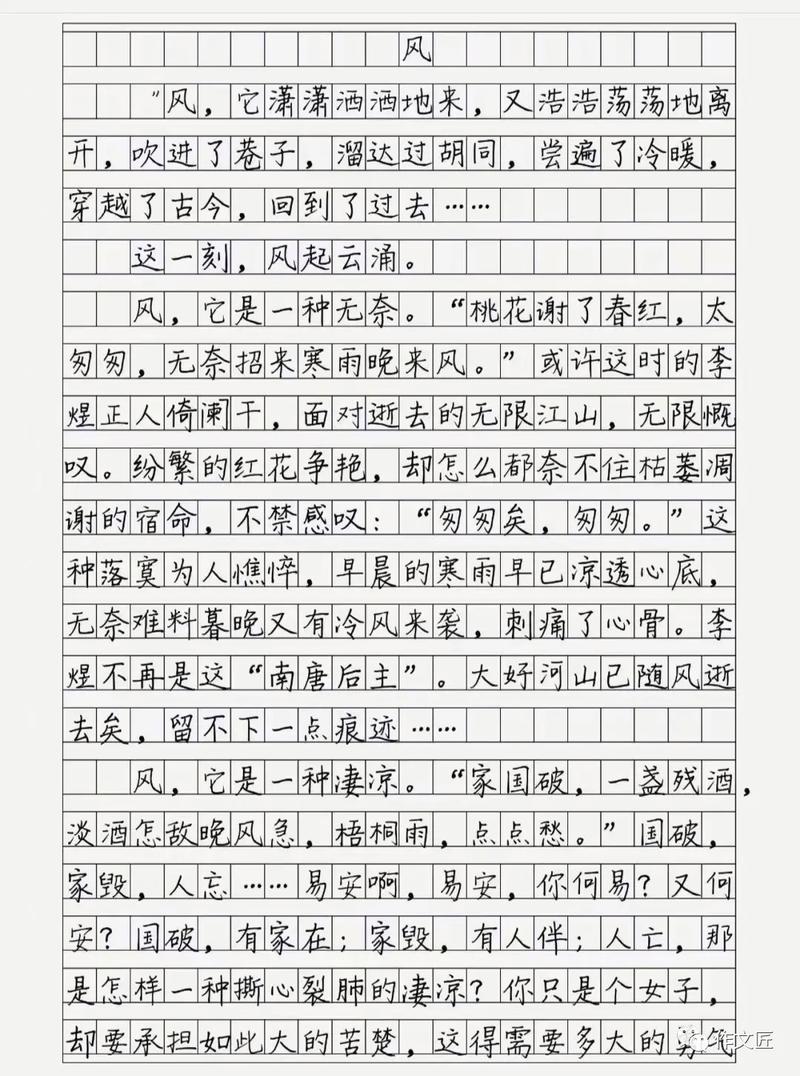 风
"风，它潇潇洒洒地来，又浩浩荡荡地离
开，吹进了巷子，溜达过胡同，尝遍了冷暖，
穿越了古今，回到了过去……
这一刻，风起云涌。
风，它是一种无奈。“桃花谢了春红，太
匆匆，无奈招来寒雨晚来风。”或许这时的李
煜正人倚阑干，面对逝去的无限江山，无限慨
叹。纷繁的红花争艳，却怎么都奈不住枯萎凋
谢的宿命，不禁感叹：“匆匆矣，匆匆。”这
种落寞为人憔悴，早晨的寒雨早已凉透心底，
无奈难料暮晚又有冷风来袭，刺痛了心骨。李
煜不再是这“南唐后主”。大好河山已随风逝
去矣，留不下一点痕迹……
风，它是一种凄凉。“家国破，一盏残酒，
淡酒怎敌晚风急，梧桐雨，点点愁。”国破，
家毁，人忘……易安啊，易安，你何易？又何
安？国破，有家在；家毁，有人伴；人亡，那
是怎样一种撕心裂肺的凄凉？你只是个女子，
却要承担如此大的苦楚，这得需要多大的勇气
作文匠